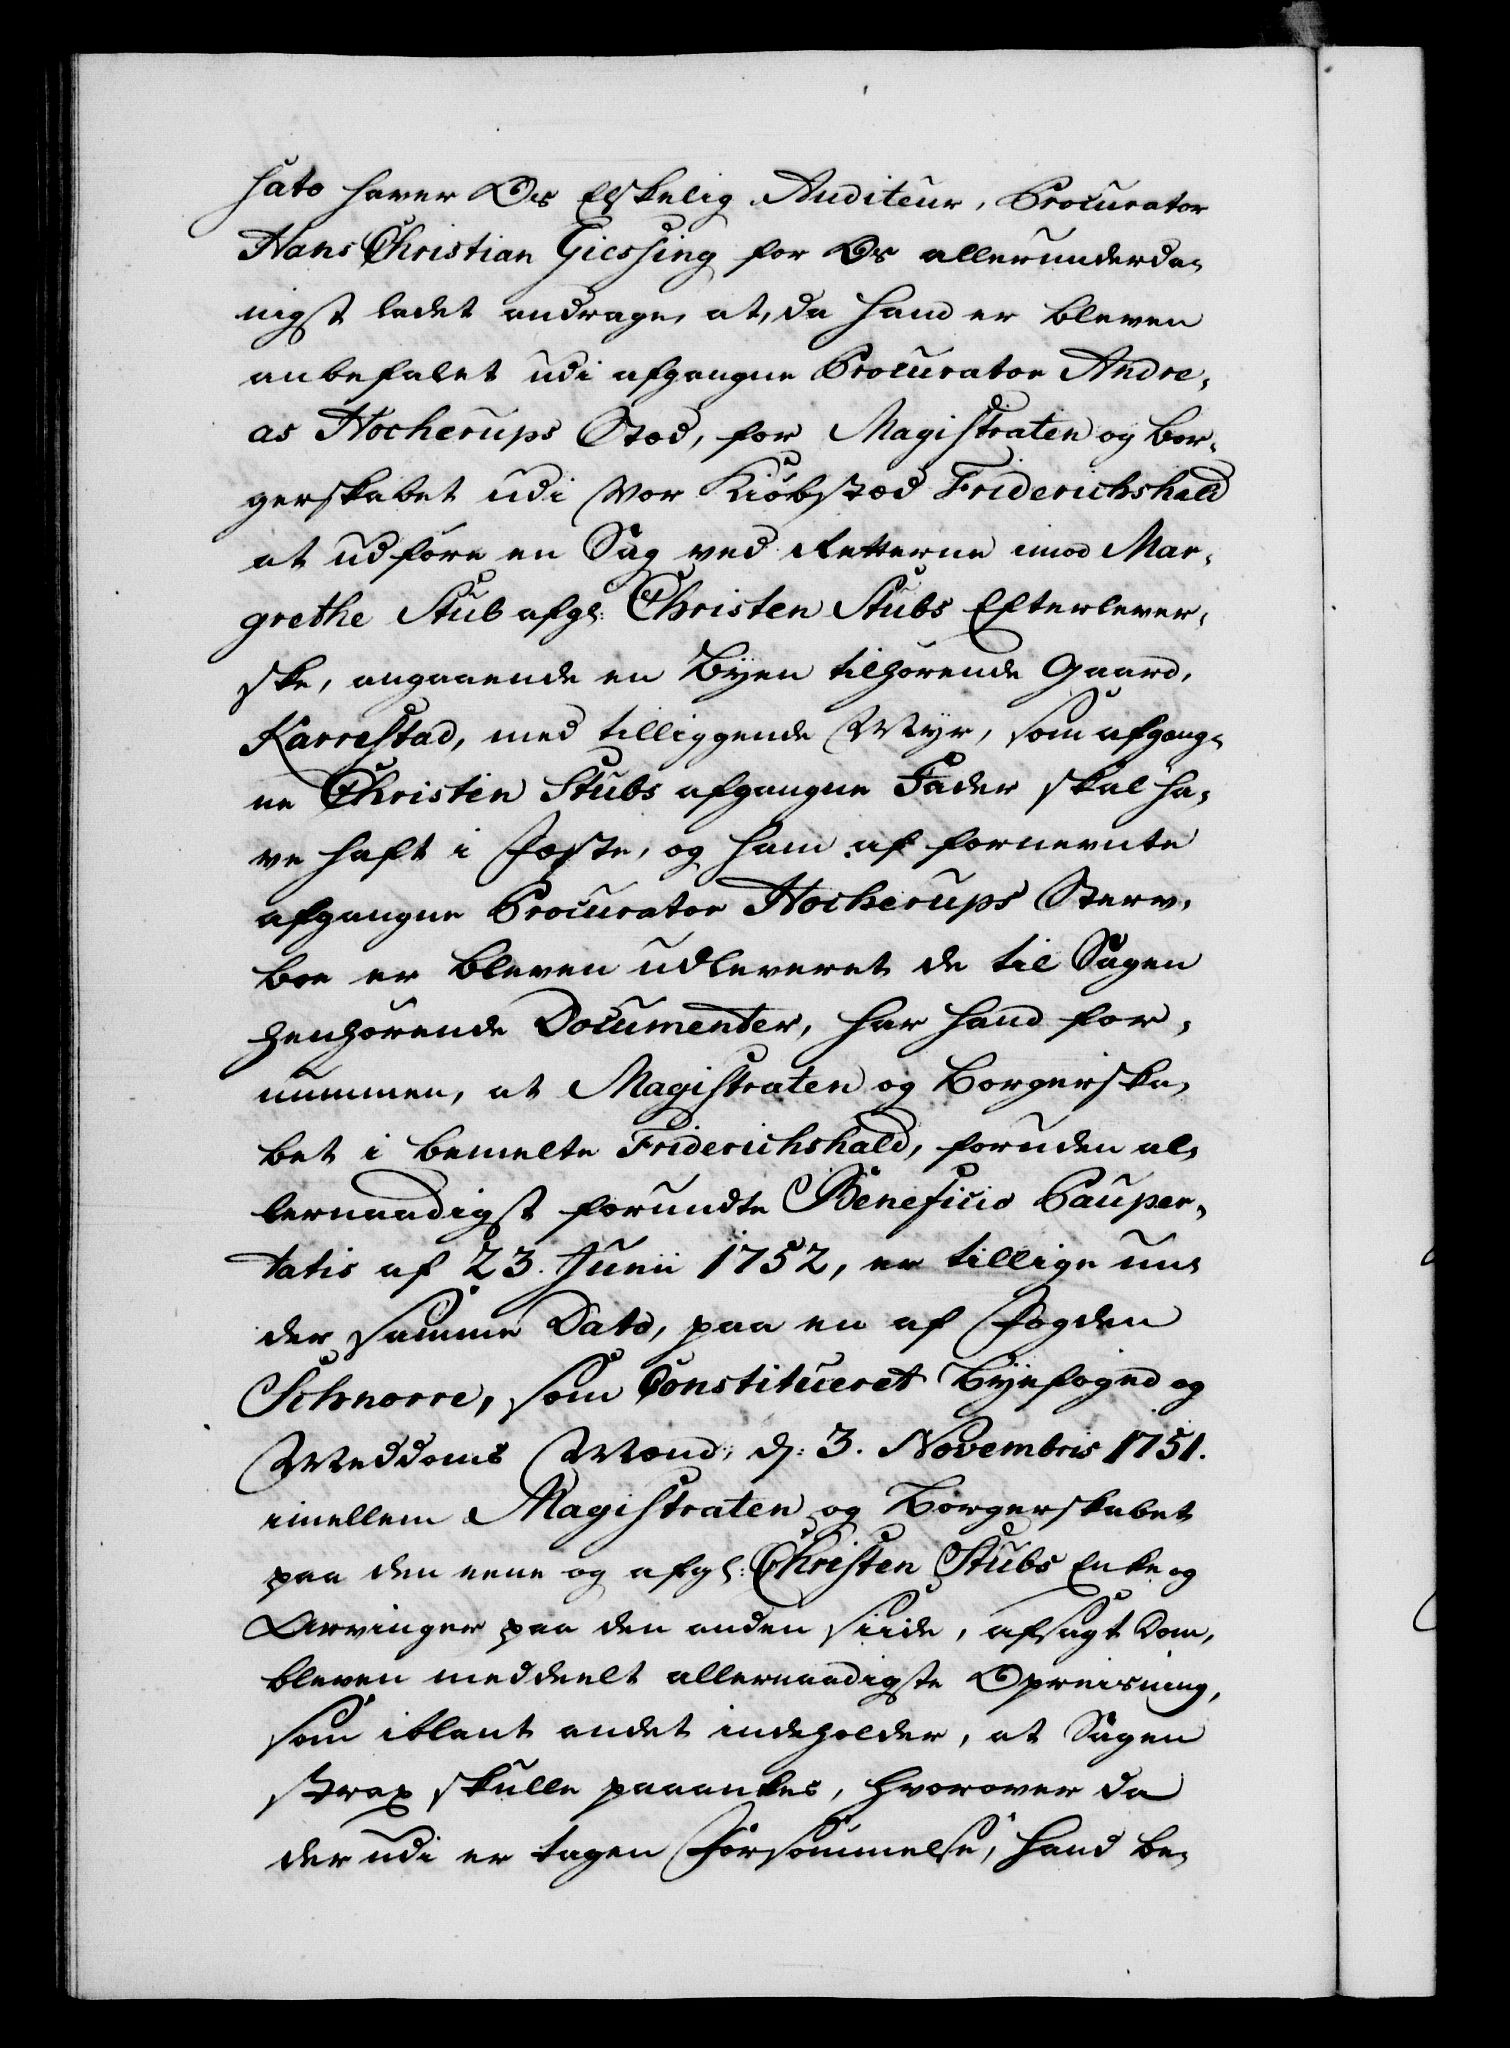 hato haver Os Elskelig Auditeur, Procurator
Hans Christian Giessing for Os allerunderda,
nigst ladet andrage, at, da hand er bleven
anbefalet udi afgangne Procurator Andre,
as Hocherups Stæd, for Magistraten og Bor,
gerskabet udi Vor Kiöbstæd Friderichshald
at udføre en Sag ved Retterne imod Mar,
grethe Stub afgl: Christen Stubs Efterlever,
ske, angaaende en Byen tilhørende Gaard,
Karrestad, med tilliggende Myr, som afgang,
ne Christen Stubs afgangne Fader skal ha,
ve haft i Fæste, og ham af fornevnte
afgangne Procurator Hocherups Sterv,
boe er bleven udleveret de til Sagen
henhörende Documenter, har hand for,
nummen, at Magistraten og Borgerska,
bet i bemelte Friderichshald, foruden al,
lernaadigst forundte Beneficio Pauper,
tatis af 23. Junii 1752, er tillige un,
der samme Dato, paa en af Fogden
Schnorre, som Constitueret Byefoged og
Meddoms Mænd, d: 3. Novembris 1751.
imellem Magistraten og Borgerskabet
paa den eene og afgl: Christen Stubs Enke og
Arvinger paa den anden siide, afsagt Dom,
bleven meddeelt allernaadigste Opreisning,
som iblant andet indeholder, at Sagen
strax skulle paaankes, hvorover da
der udi er tagen Forsömmelse, hand be,